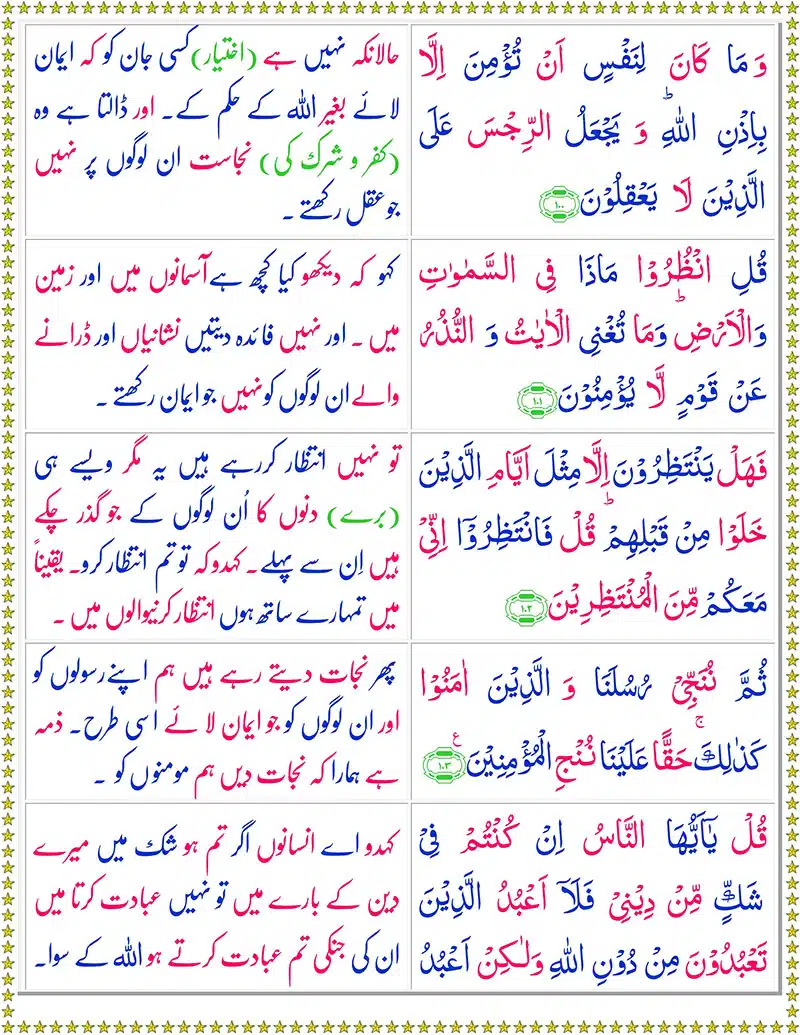 وَ مَا كَانَ لِنَفْسٍ اَنْ تُؤْمِنَ اِلَّا
بِاِذْنِ اللّٰهِؕ وَ يَجْعَلُ الرِّجْسَ عَلَى
الَّذِيْنَ لَا يَعْقِلُوْنَ ۱۰۰
حالانکہ نہیں ہے (اختیار) کسی جان کو کہ ایمان
لائے بغیر اللہ کے حکم کے۔ اور ڈالتا ہے وہ
(کفر و شرک کی) نجاست ان لوگوں پر نہیں
جو عقل رکھتے۔
قُلِ انْظُرُوْا مَاذَا فِى السَّمٰوٰتِ
وَالْاَرْضِؕ وَمَا تُغْنِى الْاٰيٰتُ وَ النُّذُرُ
عَنْ قَوْمٍ لَّا يُؤْمِنُوْنَ ۱۰۱
کہو کہ دیکھو کیا کچھ ہے آسمانوں میں اور زمین
میں۔ اور نہیں فائدہ دیتیں نشانیاں اور ڈرانے
والے ان لوگوں کو نہیں جو ایمان رکھتے۔
فَهَلْ يَنْتَظِرُوْنَ اِلَّا مِثْلَ اَيَّامِ الَّذِيْنَ
خَلَوْا مِنْ قَبْلِهِمْؕ قُلْ فَانْتَظِرُوْۤا اِنِّىْ
مَعَكُمْ مِّنَ الْمُنْتَظِرِيْنَ ۱۰۲
تو نہیں انتظار کررہے ہیں یہ مگر ویسے ہی
(برے) دنوں کا اُن لوگوں کے جو گذر چکے
ہیں اِن سے پہلے۔ کہدو کہ تو تم انتظار کرو۔ یقیناً
میں تمہارے ساتھ ہوں انتظار کرنیوالوں میں۔
ثُمَّ نُنَجِّىْ رُسُلَنَا وَ الَّذِيْنَ اٰمَنُوْا
كَذٰلِكَۚ حَقًّا عَلَيْنَا نُنْجِ الْمُؤْمِنِيْنَ ۱۰۳ ع
پھر نجات دیتے رہے ہیں ہم اپنے رسولوں کو
اور ان لوگوں کو جو ایمان لائے اسی طرح۔ ذمہ
ہے ہمارا کہ نجات دیں ہم مومنوں کو۔
قُلْ يٰۤاَيُّهَا النَّاسُ اِنْ كُنْتُمْ فِىْ
شَكٍّ مِّنْ دِيْنِىْ فَلَاۤ اَعْبُدُ الَّذِيْنَ
تَعْبُدُوْنَ مِنْ دُوْنِ اللّٰهِ وَلٰـكِنْ اَعْبُدُ
کہدو اے انسانوں اگر تم ہو شک میں میرے
دین کے بارے میں تو نہیں عبادت کرتا میں
ان کی جنکی تم عبادت کرتے ہو اللہ کے سوا۔